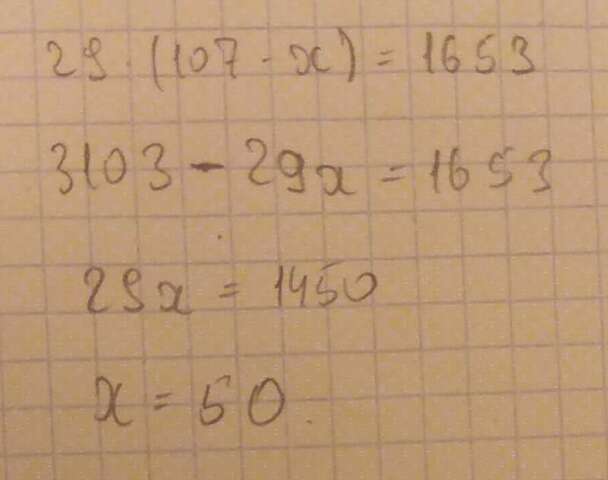 29 · (107 - x) = 1653
3103 - 29x = 1653
29x = 1450
x = 50.